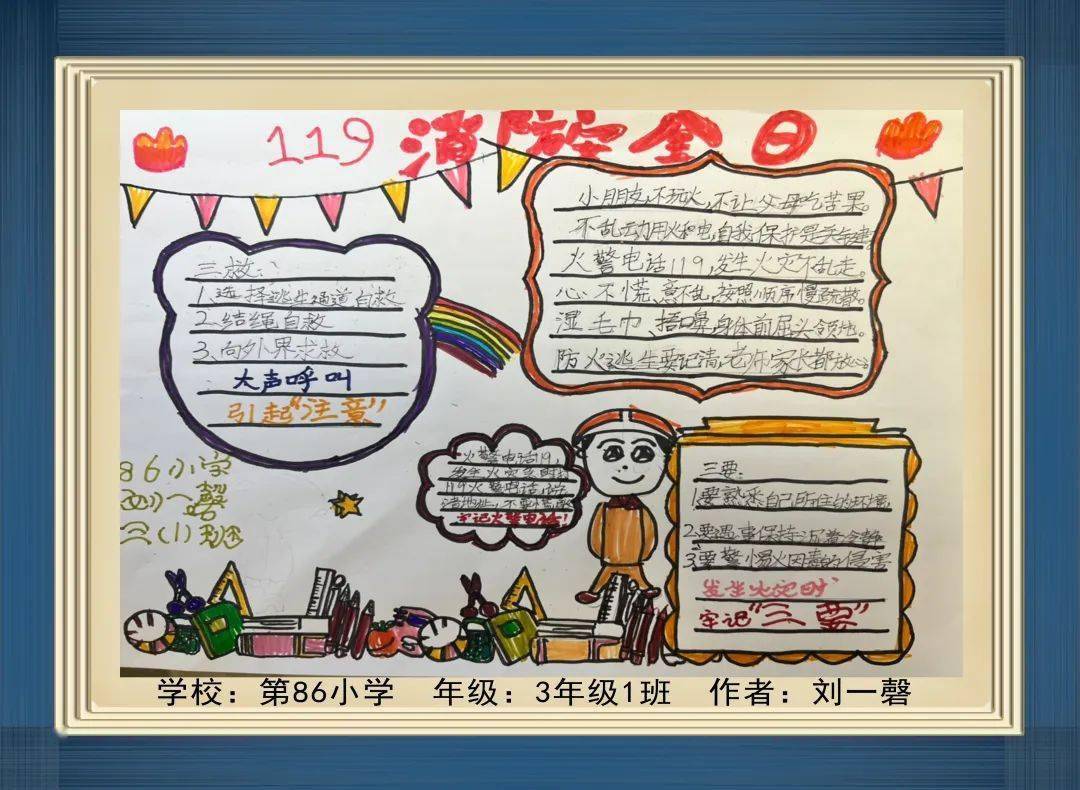 119 消防安全日
小朋友,不玩火,不让父母吃苦果。
不乱动用火和电,自我保护是关键
火警电话119,发生火灾不乱走。
心不慌,意不乱,按照顺序慢疏散。
湿毛巾 捂嘴鼻,身体前屈头领地。
防火逃生要记清,老师家长都放心
三救:
1.选择逃生通道自救
2.结绳自救
3.向外界求救
大声呼叫
引起“注意”
火警电话119,
119火警电话,
清地址,不要慌
牢记火警电话!
86小学
刘一磬
三(1)班
三要:
1.要熟悉自己所住的环境
2.要遇事保持沉着冷静
3.要警惕火因毒的侵害
发生火灾时
牢记“三要”
学校:第86小学 年级:3年级1班 作者:刘一磬